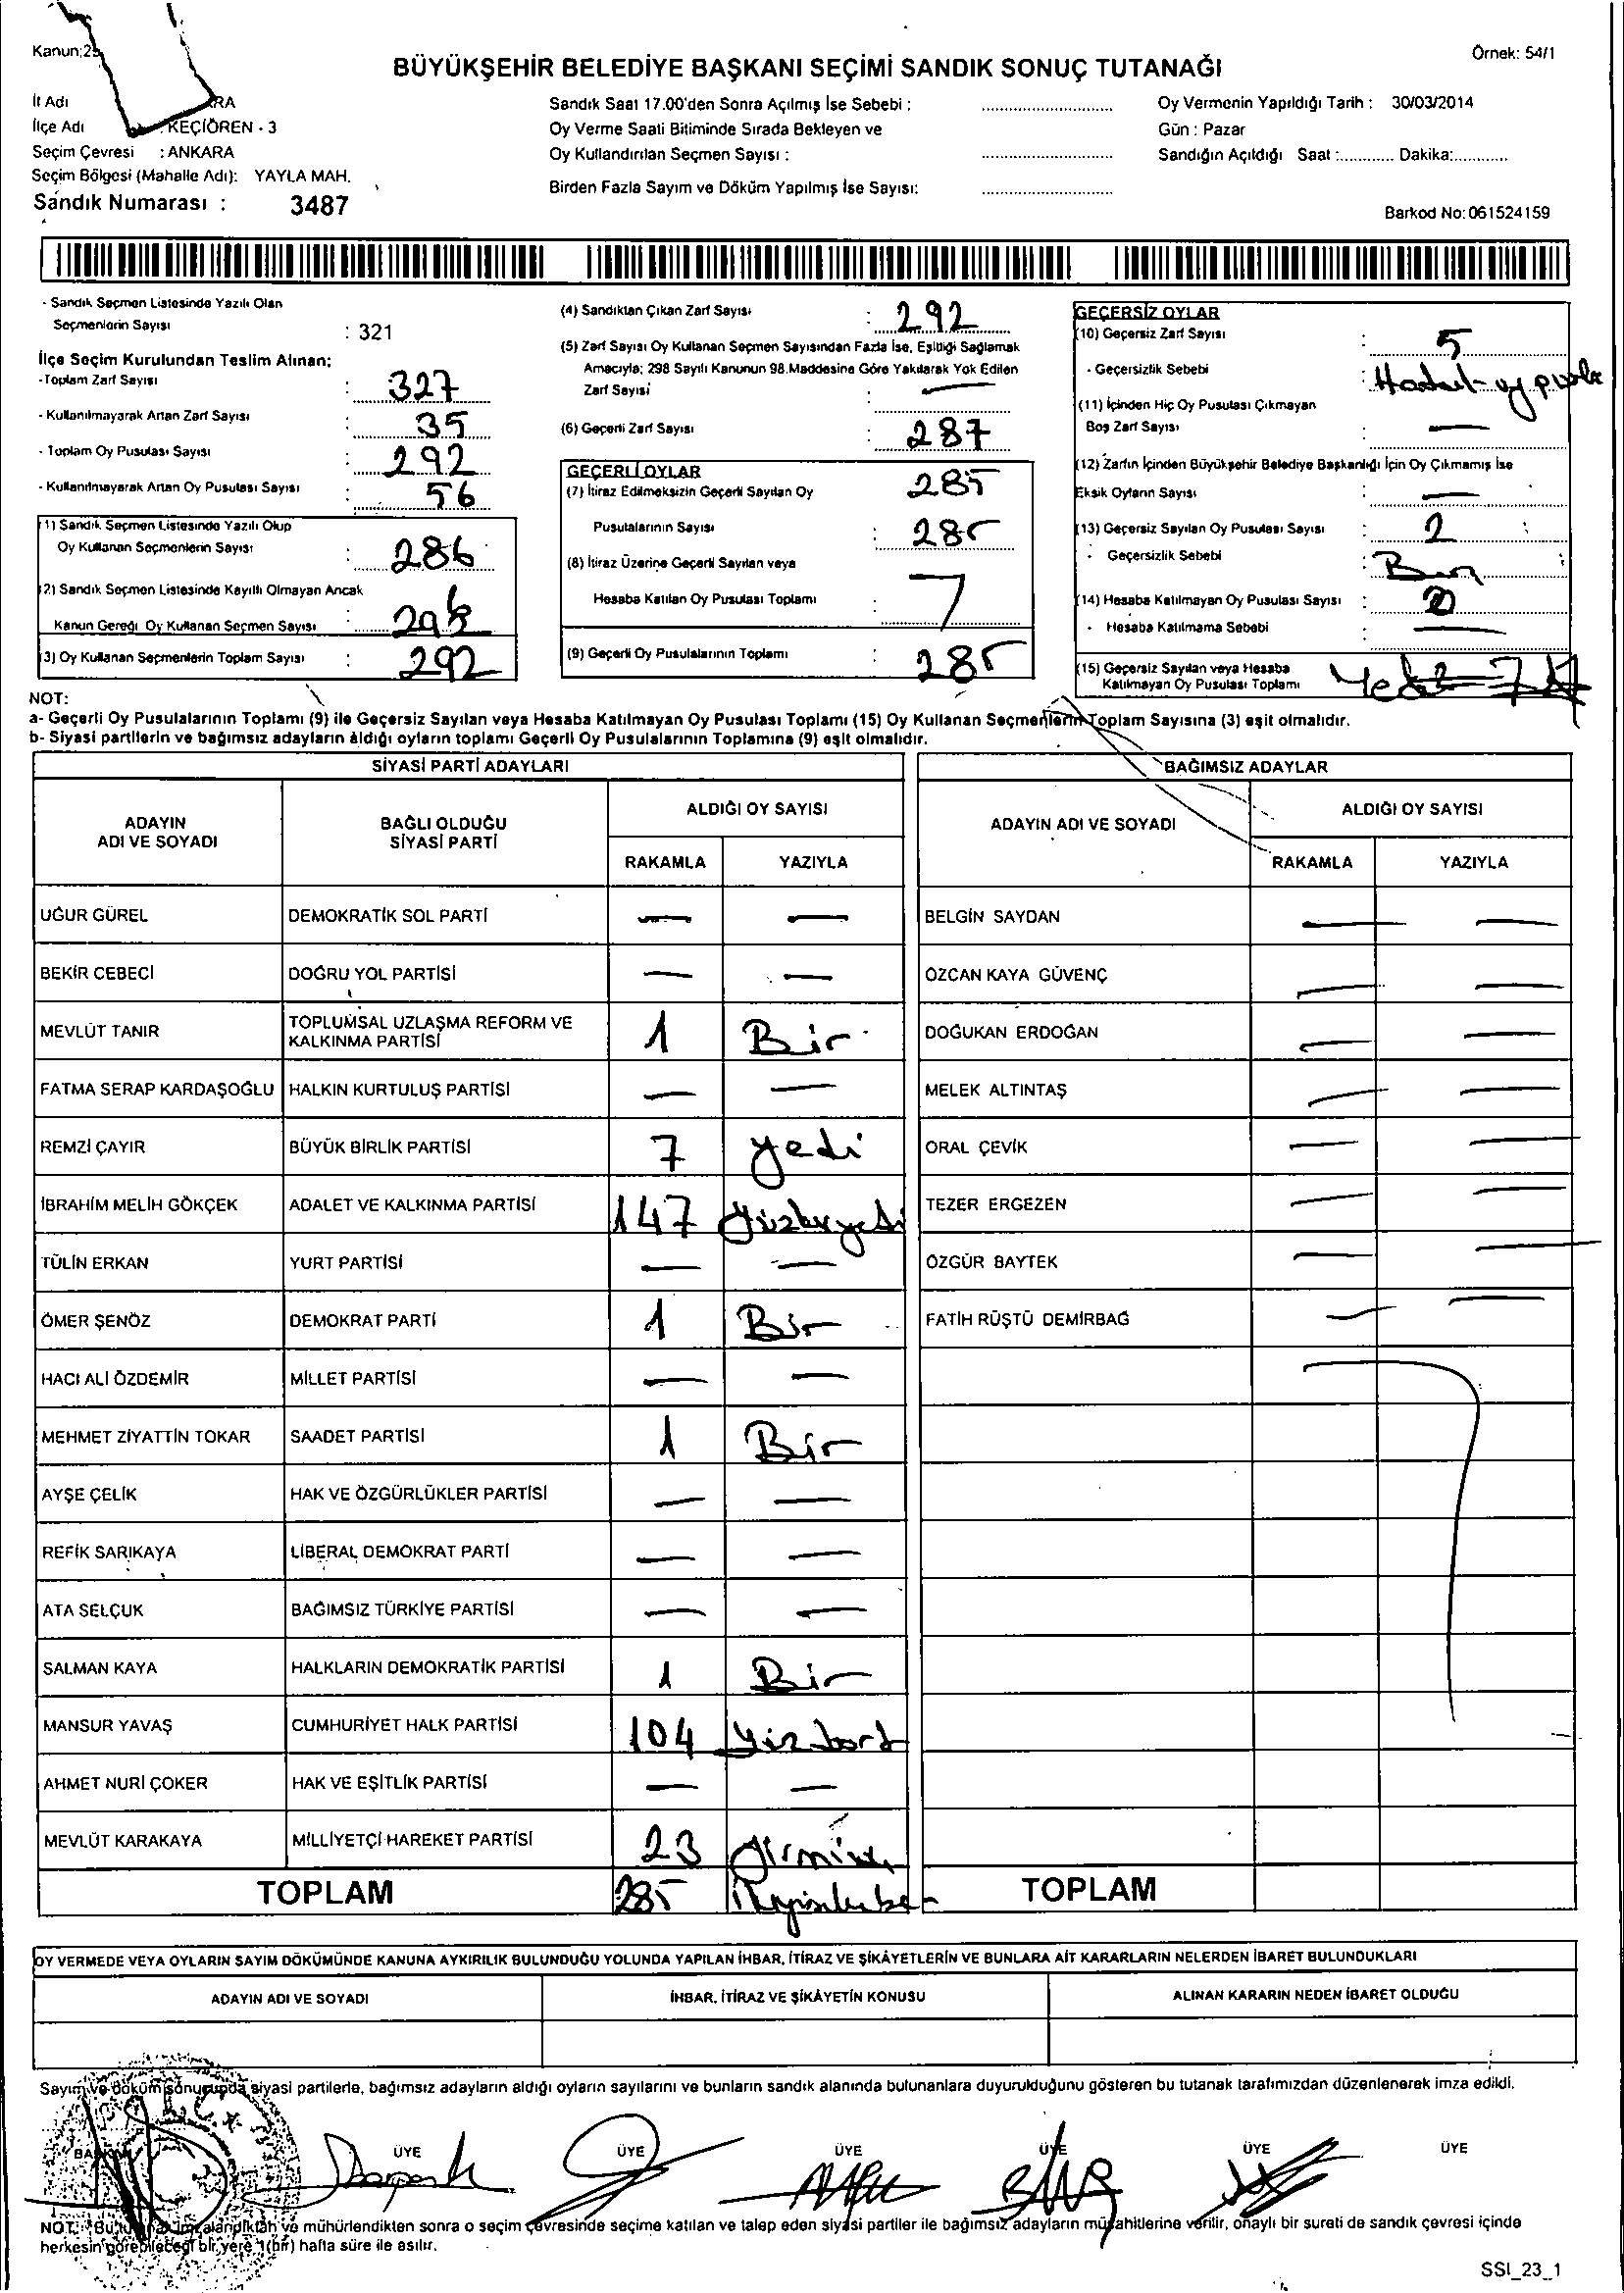 Kanun:29
Örnek: 54/1
BÜYÜKŞEHİR BELEDİYE BAŞKANI SEÇİMİ SANDIK SONUÇ TUTANAĞI
İl Adı RA
İlçe Adı : KEÇİÖREN - 3
Seçim Çevresi : ANKARA
Seçim Bölgesi (Mahalle Adı): YAYLA MAH.
Sandık Numarası : 3487
Sandık Saat 17.00'den Sonra Açılmış İse Sebebi :
Oy Verme Saati Bitiminde Sırada Bekleyen ve
Oy Kullandırılan Seçmen Sayısı :
Birden Fazla Sayım ve Döküm Yapılmış İse Sayısı:
Oy Vermenin Yapıldığı Tarih : 30/03/2014
Gün : Pazar
Sandığın Açıldığı Saat :............ Dakika:............
Barkod No: 061524159
- Sandık Seçmen Listesinde Yazılı Olan
Seçmenlerin Sayısı : 321
İlçe Seçim Kurulundan Teslim Alınan:
- Toplam Zarf Sayısı : 327
- Kullanılmayarak Artan Zarf Sayısı : 35
- Toplam Oy Pusulası Sayısı : 292
- Kullanılmayarak Artan Oy Pusulası Sayısı : 56
(1) Sandık Seçmen Listesinde Yazılı Olup
Oy Kullanan Seçmenlerin Sayısı : 286
(2) Sandık Seçmen Listesinde Kayıtlı Olmayan Ancak
Kanun Gereği Oy Kullanan Seçmen Sayısı :
(3) Oy Kullanan Seçmenlerin Toplam Sayısı : 292
(4) Sandıktan Çıkan Zarf Sayısı : 292
(5) Zarf Sayısı Oy Kullanan Seçmen Sayısından Fazla İse, Eşitliği Sağlamak
Amacıyla; 298 Sayılı Kanunun 98.Maddesine Göre Yakılarak Yok Edilen
Zarf Sayısı : —
(6) Geçerli Zarf Sayısı : 287
GEÇERLİ OYLAR 285
(7) İtiraz Edilmeksizin Geçerli Sayılan Oy
Pusulalarının Sayısı : 285
(8) İtiraz Üzerine Geçerli Sayılan veya
Hesaba Katılan Oy Pusulası Toplamı :
(9) Geçerli Oy Pusulalarının Toplamı : 285
GEÇERSİZ OYLAR
(10) Geçersiz Zarf Sayısı : 5
- Geçersizlik Sebebi :
(11) İçinden Hiç Oy Pusulası Çıkmayan
Boş Zarf Sayısı : —
(12) Zarfın İçinden Büyükşehir Belediye Başkanlığı İçin Oy Çıkmamış İse
Eksik Oyların Sayısı : —
(13) Geçersiz Sayılan Oy Pusulası Sayısı : 2
- Geçersizlik Sebebi :
(14) Hesaba Katılmayan Oy Pusulası Sayısı :
- Hesaba Katılmama Sebebi : —
(15) Geçersiz Sayılan veya Hesaba
Katılmayan Oy Pusulası Toplamı
NOT:
a- Geçerli Oy Pusulalarının Toplamı (9) ile Geçersiz Sayılan veya Hesaba Katılmayan Oy Pusulası Toplamı (15) Oy Kullanan Seçmenlerin Toplam Sayısına (3) eşit olmalıdır.
b- Siyasi partilerin ve bağımsız adayların aldığı oyların toplamı Geçerli Oy Pusulalarının Toplamına (9) eşit olmalıdır.
SİYASİ PARTİ ADAYLARI
ADAYIN ADI VE SOYADI BAĞLI OLDUĞU SİYASİ PARTİ ALDIĞI OY SAYISI
RAKAMLA YAZIYLA
UĞUR GÜREL DEMOKRATİK SOL PARTİ — —
BEKİR CEBECİ DOĞRU YOL PARTİSİ — —
MEVLÜT TANIR TOPLUMSAL UZLAŞMA REFORM VE KALKINMA PARTİSİ 1 Bir
FATMA SERAP KARDAŞOĞLU HALKIN KURTULUŞ PARTİSİ — —
REMZİ ÇAYIR BÜYÜK BİRLİK PARTİSİ 7 yedi
İBRAHİM MELİH GÖKÇEK ADALET VE KALKINMA PARTİSİ 147
TÜLİN ERKAN YURT PARTİSİ — —
ÖMER ŞENÖZ DEMOKRAT PARTİ 1 Bir
HACI ALİ ÖZDEMİR MİLLET PARTİSİ — —
MEHMET ZİYATTİN TOKAR SAADET PARTİSİ 1 Bir
AYŞE ÇELİK HAK VE ÖZGÜRLÜKLER PARTİSİ — —
REFİK SARIKAYA LİBERAL DEMOKRAT PARTİ — —
ATA SELÇUK BAĞIMSIZ TÜRKİYE PARTİSİ — —
SALMAN KAYA HALKLARIN DEMOKRATİK PARTİSİ 1 Bir
MANSUR YAVAŞ CUMHURİYET HALK PARTİSİ 104 Yüzdört
AHMET NURİ ÇOKER HAK VE EŞİTLİK PARTİSİ — —
MEVLÜT KARAKAYA MİLLİYETÇİ HAREKET PARTİSİ 23
TOPLAM 285
BAĞIMSIZ ADAYLAR
ADAYIN ADI VE SOYADI ALDIĞI OY SAYISI
RAKAMLA YAZIYLA
BELGİN SAYDAN — —
ÖZCAN KAYA GÜVENÇ — —
DOĞUKAN ERDOĞAN — —
MELEK ALTINTAŞ — —
ORAL ÇEVİK — —
TEZER ERGEZEN — —
ÖZGÜR BAYTEK — —
FATİH RÜŞTÜ DEMİRBAĞ — —
TOPLAM
OY VERMEDE VEYA OYLARIN SAYIM DÖKÜMÜNDE KANUNA AYKIRILIK BULUNDUĞU YOLUNDA YAPILAN İHBAR, İTİRAZ VE ŞİKÂYETLERİN VE BUNLARA AİT KARARLARIN NELERDEN İBARET BULUNDUKLARI
ADAYIN ADI VE SOYADI İHBAR, İTİRAZ VE ŞİKÂYETİN KONUSU ALINAN KARARIN NEDEN İBARET OLDUĞU
Sayım ve döküm sonucunda siyasi partilerle, bağımsız adayların aldığı oyların sayılarını ve bunların sandık alanında bulunanlara duyurulduğunu gösteren bu tutanak tarafımızdan düzenlenerek imza edildi.
ÜYE ÜYE ÜYE ÜYE ÜYE ÜYE
NOT: Bu tutanak imzalandıktan ve mühürlendikten sonra o seçim çevresinde seçime katılan ve talep eden siyasi partiler ile bağımsız adayların müşahitlerine verilir, onaylı bir sureti de sandık çevresi içinde
herkesin görebileceği bir yere 1(bir) hafta süre ile asılır.
SSI_23_1